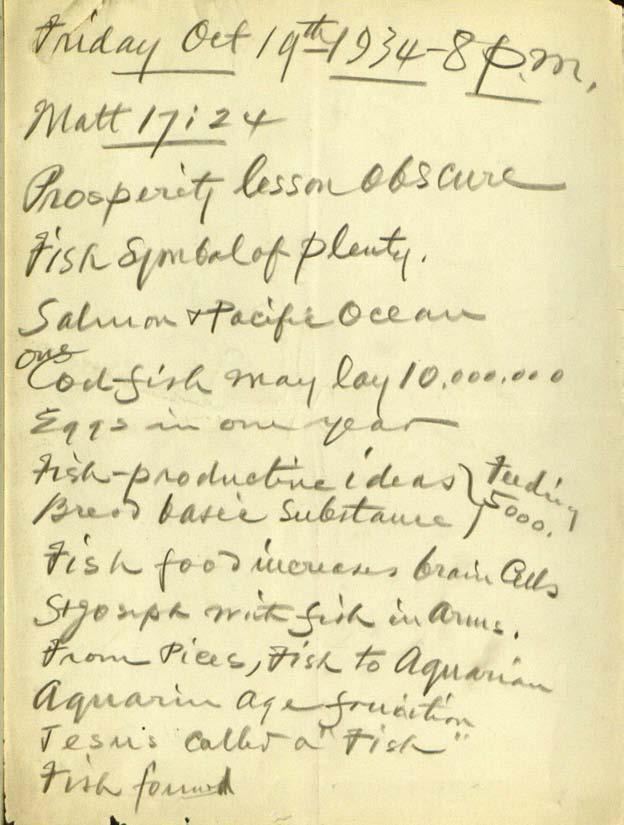 Friday Oct 19th 1934-8 p.m.
Matt 17:24
Prosperity lesson obscure
Fish Symbol of plenty.
Salmon & Pacific Ocean
one
Codfish may lay 10.000.000
Eggs in one year
Fish-productive ideas } Feeding
Bread basic Substance } 5000.
Fish food increases brain Cells
St Joseph with fish in Arms.
From Pices, Fish to Aquarian
Aquarin age fruition
Jesus called a "Fish"
Fish found